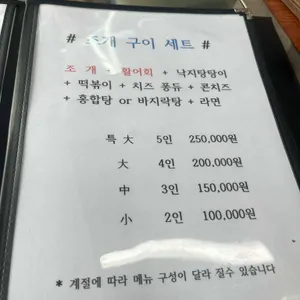 # 조개 구이 세트 #
조 개 + 활어회 + 낙지탕탕이
+ 떡볶이 + 치즈 퐁듀 + 콘치즈
+ 홍합탕 or 바지락탕 + 라면
특 大 5인 250,000원
大 4인 200,000원
中 3인 150,000원
小 2인 100,000원
* 계절에 따라 메뉴 구성이 달라 질수 있습니다